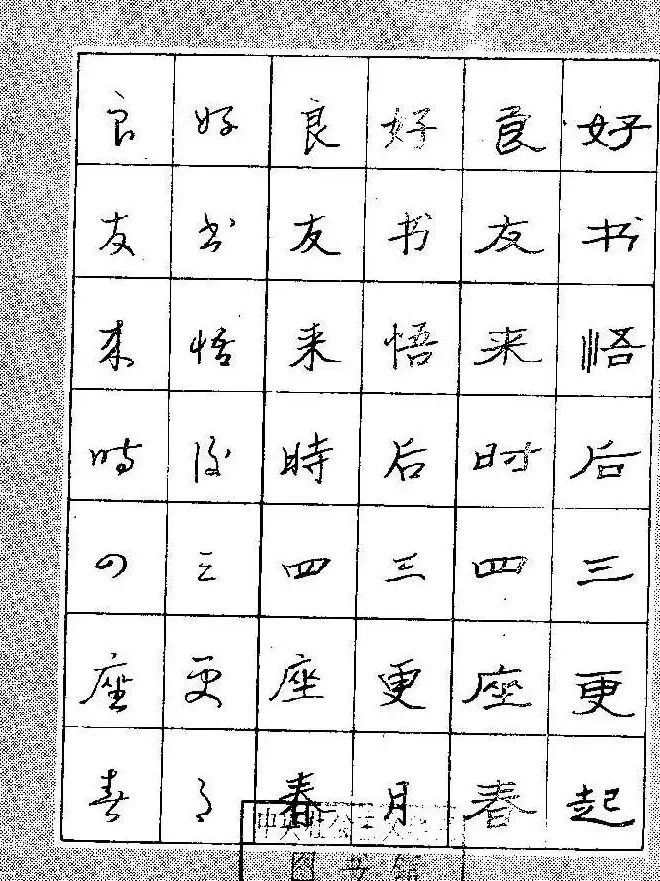 好书悟后三更起
良友来时四座春
好书悟后三更月
良友来時四座春
好书悟後三更月
良友来时四座春
中央社会主义学院
图书馆